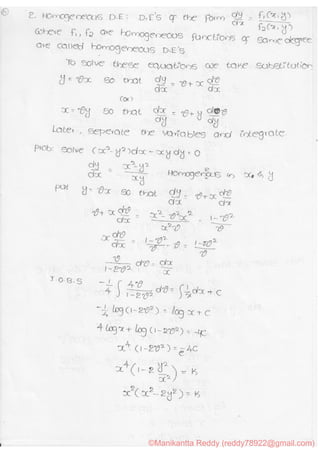 2. Homogeneous D.E: D.E's of the form dy/dx = f₁(x,y)/f₂(x,y)
where f₁, f₂ are homogeneous functions of same degree
are called homogeneous D.E's.
To solve these equations we take substitution
y = vx so that dy/dx = v + x dv/dx
(or)
x = vy so that dx/dy = v + y dv/dy
Later, seperate the variables and integrate
Prob: solve (x²-y²)dx - xy dy = 0
dy/dx = x²-y²/xy Homogeneous in x, y
put y = vx so that dy/dx = v + x dv/dx
v + x dv/dx = x² - v²x²/x²v = 1-v²/v
x dv/dx = 1-v²/v - v = 1-2v²/v
v/1-2v² dv = dx/x
I.O.B.S -1/4 ∫ 4v/1-2v² dv = ∫ 1/x dx + c
-1/4 log(1-2v²) = log x + c
4 log x + log(1-2v²) = -4c
x⁴(1-2v²) = e^-4c
x⁴(1-2 y²/x²) = k
x²(x²-2y²) = k
©Manikantta Reddy (reddy78922@gmail.com)